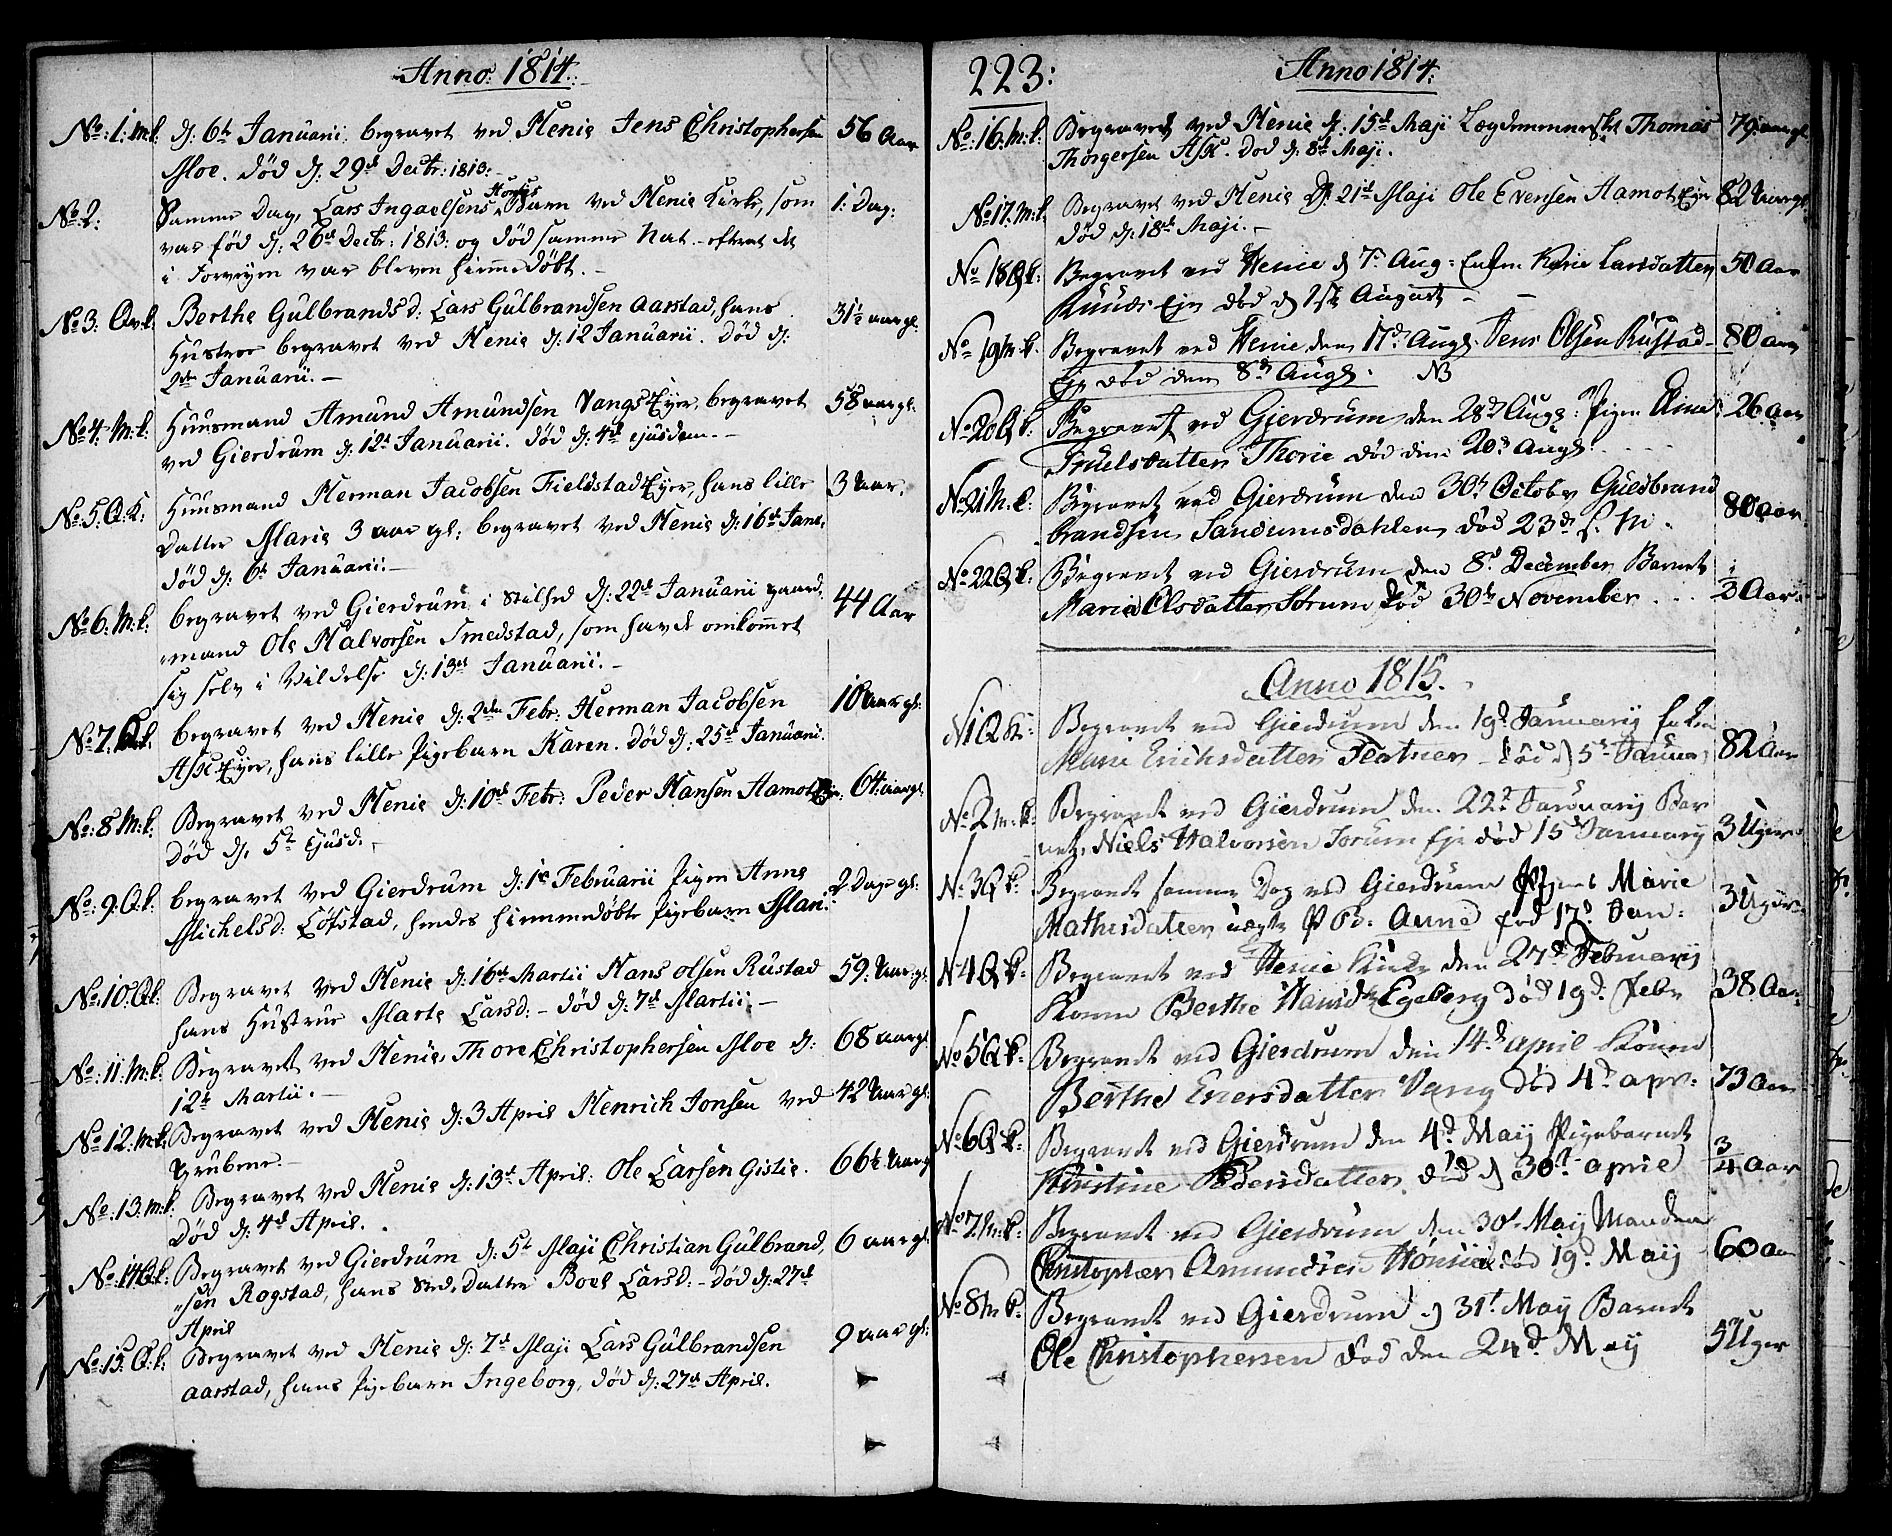 Anno: 1814.
No: 1: m.k. d: 6te Januarii begravet ved Henie Jens Christophersen 56 Aar
Moe. død d: 29de Decbr: 1813.
No 2. Samme Dag, Lars Ingvelsens Barn ved Henie Kirke, som 1. Dag:
var fød d: 26de Decbr: 1813: og død samme Nat efterat det
i Forveyen var bleven hiemmedøbt.
No 3: Qv.k. Berthe Gulbrandsd. Lars Gulbrandsen Aarstad, hans 31½ aar gl.
Hustroe begravet ved Henie d: 12 Januarii. død d:
2den Januarii.
No 4: M:k: Huusmand Amund Amundsen Vangs Eyer, begravet 58 aar gl.
ved Gierdrum d: 12te Januarii. død d: 4de ejusdem.
No 5. Q:k: Huusmand Herman Jacobsen Fieldstad Eyer, hans lille 3 Aar.
Datter Marie 3 aar gl: begravet ved Henie d: 16de Janu:
død d: 6te Januarii.
No 6: M:k: begravet ved Gierdrum i Stilhed d: 22de Januarii gaard- 44 Aar
mand Ole Halvorsen Smedstad, som havde omkommet
sig selv i Vildelse d: 13de Januarii.
No 7. Q.k. begravet ved Henie d: 2den Febr: Herman Jacobsen aar gl:
Ask Eyer, hans lille Pigebarn Karen. død d: 25de Januarii.
No: 8 M:k: Begravet ved Henie d: 10de Febr: Peder Hansen Aamot Eje. 64. aar gl:
død d. 5te Ejusd.
No: 9. Q.k. begravet ved Gierdrum d: 1ste Februarii Pigen Anne 2 Dage gl:
Michelsd: Løfstad, hendes hiemmedøbte Pigebarn Mari:
No: 10. Q.k: Begravet ved Henie d: 16de Martii Hans Olsen Rustad 59. Aar gl.
hans Hustrue Marte Larsd: - død d: 7de Martii
No: 11: M.k: Begravet ved Henie, Thore Christophersen Moe d: 68 aar gl
12te Martii.
No 12. m.k: Begravet ved Henie d: 3 April Henrich Jonsen ved 42 Aar gl:
Grubene.
No: 13. m.k. Begravet ved Henie d: 13de April. Ole Larsen Gistie. 66½ Aar gl
død d: 4de April.
No: 14 Q.k: Begravet ved Gierdrum d: 5te Maji Christian Gulbrand- 6 aar gl.
sen Rogstad, hans Sted-datter Boel Larsd: - død d: 27de
April
No: 15. Q:k: Begravet ved Henie d: 7de Maji Lars Gulbrandsen 9 aar gl:
Aarstad, hans Pigebarn Ingeborg, død d: 27de April.
223:
Anno 1814.
No: 16. M:k: Begravet ved Henie d: 15de Maji Lægdemennesket Thomas 79. aar gl.
Thorgersen Ask. død d: 8de Maji.
No 17. M:k. Begravet ved Henie d: 21de Maji Ole Evensen Aamot Eje 82 Aar gl.
død d: 18de Maji.
No 18 Q.k: Begravet ved Henie d 7. Aug: Enken Karie Larsdatter 50 Aar
Eje død d 1ste August
No 19 M.k. Begravet ved Henie den 17de Augs. Jens Olsen Rustad 80 aar
Eje død den 8de Augs. NB
No 20 Q k. Begravet ved Gierdrum den 28de Augs: Pigen 26 aar
Truelsdatter Thorie død den 20de Augs.
No 21 M.k: Begravet ved Gierdrum den 30te October Guldbrand 80 aar
brandsen Sandumsdahlen død 23de s. M.
No 22 Q.k. Begravet ved Gierdrum den 8de December Barnet
Maria Olsdatter Sørum død 30te November 3 Aar
Anno 1815.
N 1 Q k: Begravet ved Gierdrum den 19de January 82 Aar
Erichsdatter død d 5te Januar
No 2 m.k. Begravet ved Gierdrum den 22de January Bar
net, Niels Halvorsen Sørum Eje død 15de January 3 Uger
No 3 Q k. Begravet samme Dag ved Gierdrum Marie 3 Uger
Mathisdatters uægte P B. Anne fød 17de Jan:
No 4 Q k. Begravet ved Henie Kirke den 27de February
Konen Berthe Egeberg død 19de Febr 38 Aar
No 5 Q k. Begravet ved Gierdrum den 14de april Konen
Berthe Enersdatter Vang død 4de apr: 73 Aar
No 6 Q k. Begravet ved Gierdrum den 4de May Pigebarnet
Kiristine Pedersdatter død d 30te aprie 3/4 Aar
No 7 m.k. Begravet ved Gierdrum den 30te May Manden
Christopher Amundsen død 19de May 60 Aar
No 8 m k. Begravet ved Gierdrum d 31te May Barnet
Ole Christophersen død den 24de May 5 Uger